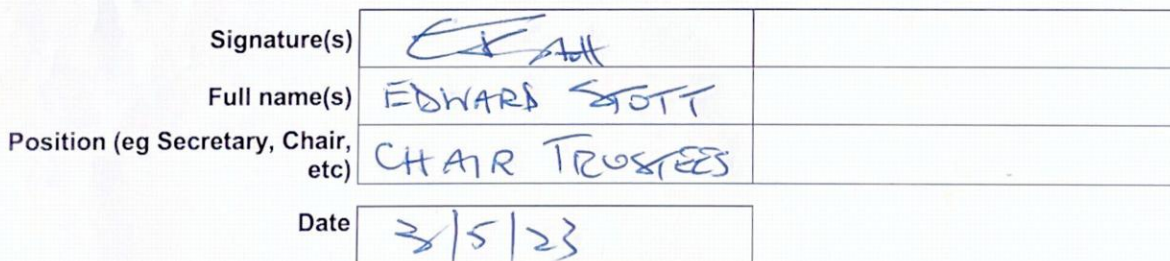 Signature(s)
Full name(s) EDWARD STOTT
Position (eg Secretary, Chair, etc) CHAIR TRUSTEES
Date 3/5/23